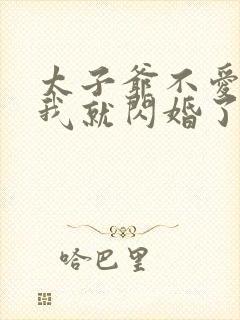 太子爺不愛
我就閃婚了
哈巴里